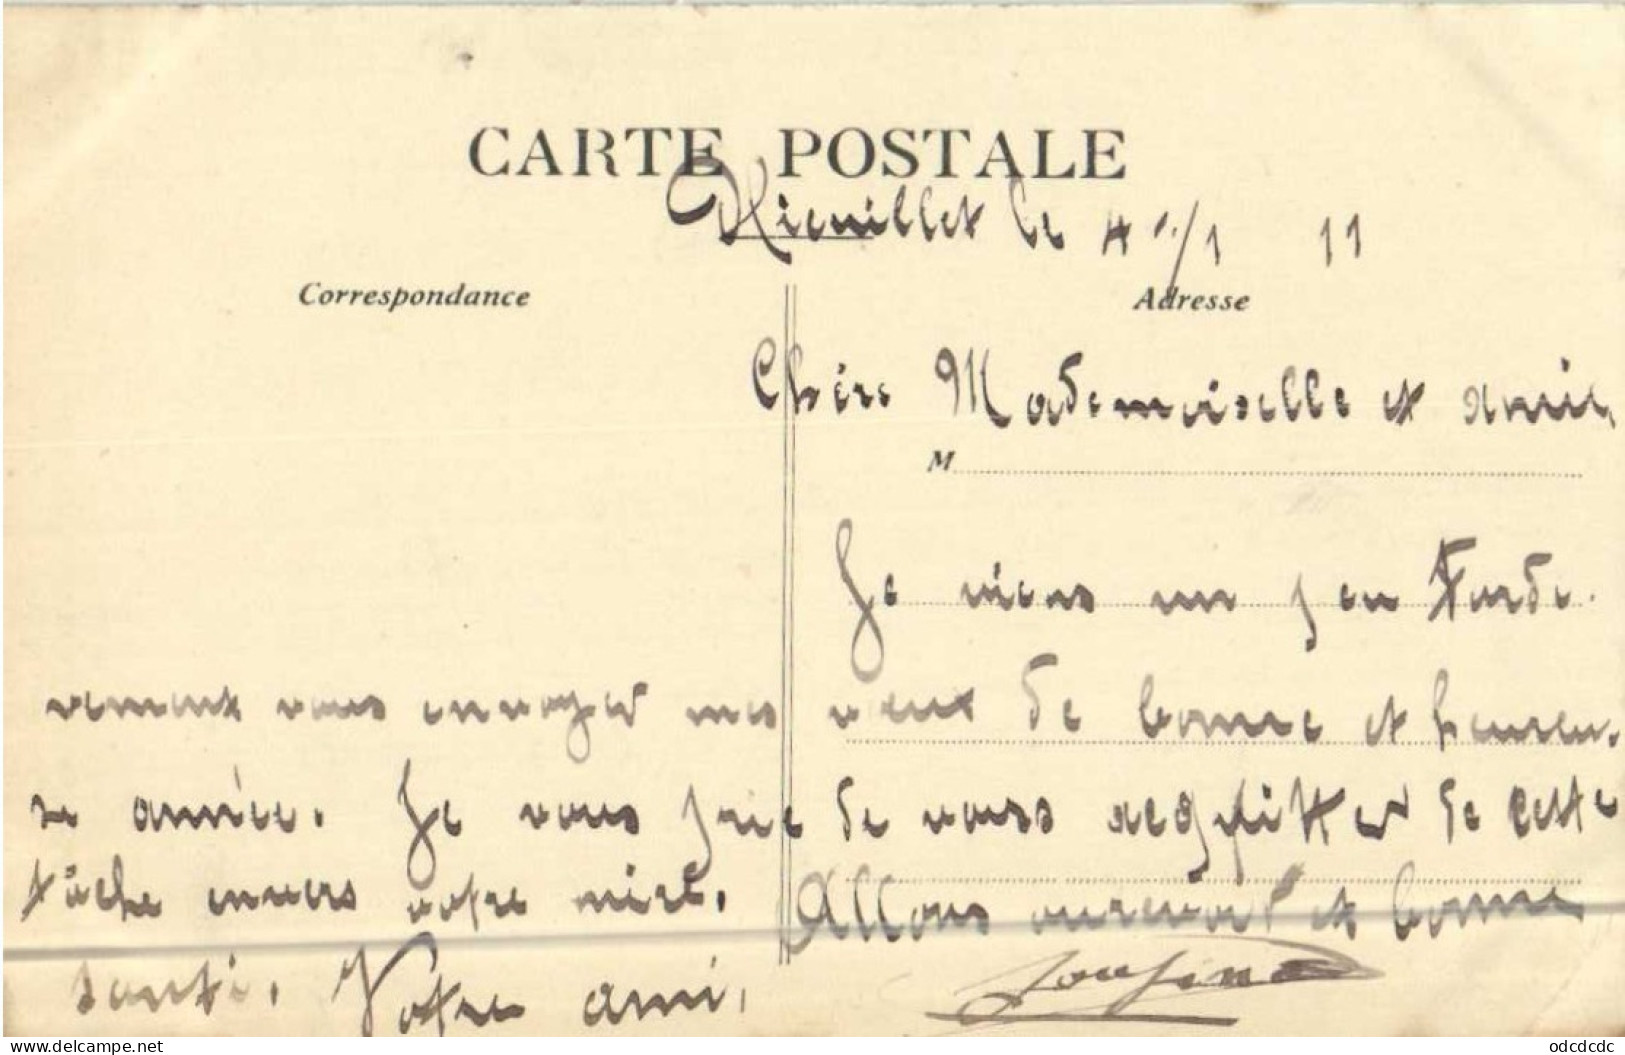 CARTE POSTALE
le 4 /1 11
Correspondance
Adresse
Chère Mademoiselle et amie,
M
Je viens un peu tardi.
vement vous envoyer mes vœux de bonne et heureu.
se année. Je vous prie de vous acquitter de cette
tâche envers votre mère. Allons aurevoir et bonne
santé. Votre ami,
Delcampe.net
odcdcdc